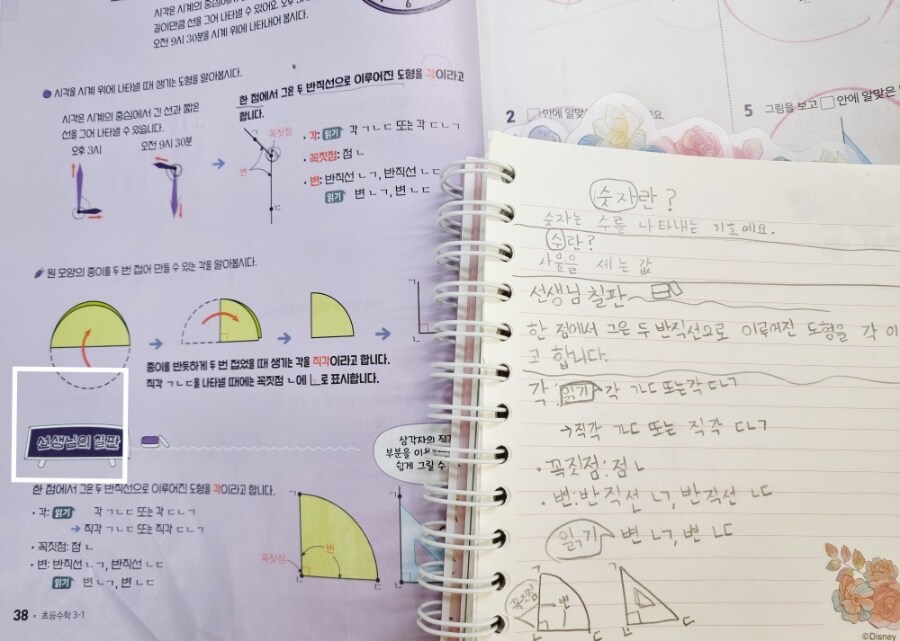 시각은 시계의 중심에서
길이만큼 선을 그어 나타낼 수 있어요. 오후
오전 9시 30분을 시계 위에 나타내어 봅시다.
6
시각을 시계 위에 나타낼 때 생기는 도형을 알아봅시다.
시각은 시계의 중심에서 긴 선과 짧은
선을 그어 나타낼 수 있습니다.
오후 3시
오전 9시 30분
한 점에서 그은 두 반직선으로 이루어진 도형을 각이라고
합니다.
ㄱ
꼭짓점
ㄴ
변
ㄷ
• 각: 읽기 각 ㄱㄴㄷ 또는 각 ㄷㄴㄱ
• 꼭짓점: 점 ㄴ
• 변: 반직선 ㄴㄱ, 반직선 ㄴㄷ
읽기 변 ㄴㄱ, 변 ㄴㄷ
원 모양의 종이를 두 번 접어 만들 수 있는 각을 알아봅시다.
종이를 반듯하게 두 번 접었을 때 생기는 각을 직각이라고 합니다.
직각 ㄱㄴㄷ을 나타낼 때에는 꼭짓점 ㄴ에 ㄴ로 표시합니다.
선생님의 칠판
삼각자의 직각
부분을
쉽게 그릴 수
한 점에서 그은 두 반직선으로 이루어진 도형을 각이라고 합니다.
• 각: 읽기 각 ㄱㄴㄷ 또는 각 ㄷㄴㄱ
→ 직각 ㄱㄴㄷ 또는 직각 ㄷㄴㄱ
• 꼭짓점: 점 ㄴ
• 변: 반직선 ㄴㄱ, 반직선 ㄴㄷ
읽기 변 ㄴㄱ, 변 ㄴㄷ
ㄱ
변
꼭짓점
ㄴ
ㄷ
ㄱ
38 • 초등수학 3-1
2 □안에 알맞
요.
5 그림을 보고 □안에 알맞은
숫자란?
숫자는 수를 나타내는 기호예요.
수란?
사물을 세는 값
선생님 칠판
한 점에서 그은 두 반직선으로 이루어진 도형을 각 이
고 합니다.
각: 읽기 각 ㄱㄴㄷ 또는 각 ㄷㄴㄱ
→직각 ㄱㄴㄷ 또는 직각 ㄷㄴㄱ
• 꼭짓점: 점 ㄴ
• 변: 반직선 ㄴㄱ, 반직선 ㄴㄷ
읽기 변 ㄴㄱ, 변 ㄴㄷ
꼭짓점
변
ㄴ
ㄷ
ㄱ
ㄴ
ㄷ
©Disney